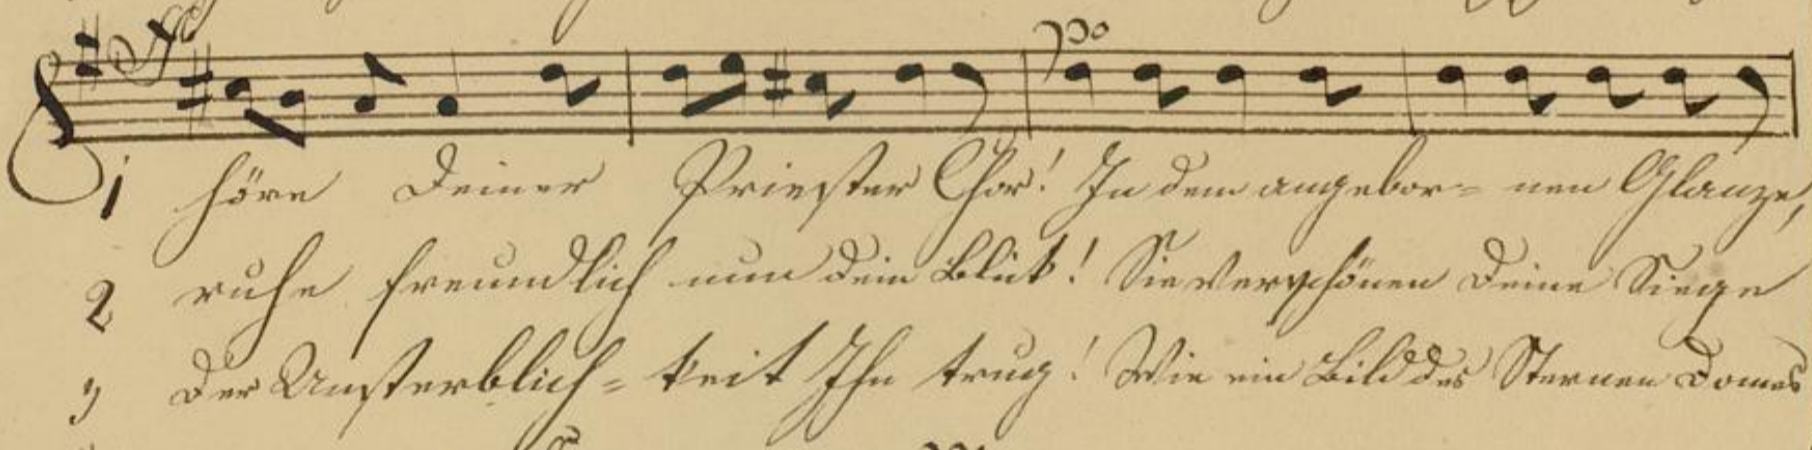 ff po
1 höre Deiner Priester Chor! In dem angebor= nen Glanze,
2 ruhe freundlich nun dein Blick! Sie verschönen Deine Siege
3 Der Unsterblich= keit Ihn trug! Wie ein Bild des Sternen Domes